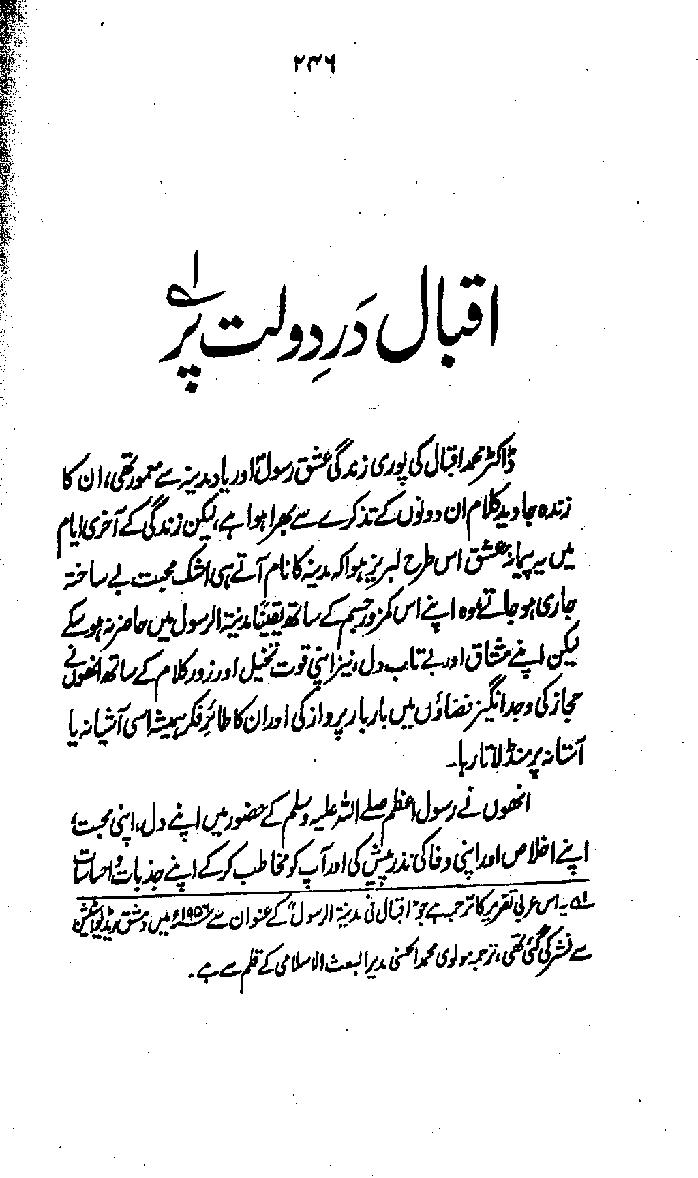 ۲۳۶
اقبال دَرِ دولت پر ؂۱
ڈاکٹر محمد اقبال کی پوری زندگی عشق رسولؐ اور یاد مدینہ سے معمور تھی، ان کا
زندہ جاوید کلام ان دونوں کے تذکرے سے بھرا ہوا ہے، لیکن زندگی کے آخری ایام
میں یہ پیمانہ عشق اس طرح لبریز ہوا کہ مدینہ کا نام آتے ہی اشک محبت بے ساختہ
جاری ہو جاتے، وہ اپنے اس کمزور جسم کے ساتھ یقیناً مدینۃ الرسول میں حاضر نہ ہو سکے
لیکن اپنے مشتاق اور بے تاب دل، نیز اپنی قوت تخیل اور زور کلام کے ساتھ انھوں نے
حجاز کی وجد انگیز فضاؤں میں بار بار پرواز کی اور ان کا طائرِ فکر ہمیشہ اسی آشیانہ یا
آستانہ پر منڈلاتا رہا۔
انھوں نے رسول اعظم صلے اللہ علیہ وسلم کے حضور میں اپنے دل، اپنی محبت،
اپنے اخلاص اور اپنی وفا کی نذر پیش کی اور آپ کو مخاطب کر کے اپنے جذبات و احساسات
؂۱ یہ اس عربی تقریر کا ترجمہ ہے جو "اقبال فی مدینۃ الرسول" کے عنوان سے ۱۹۵۶ء میں دمشق ریڈیو اسٹیشن
سے نشر کی گئی تھی، ترجمہ مولوی محمد الحسنی مدیر البعث الاسلامی کے قلم سے ہے۔